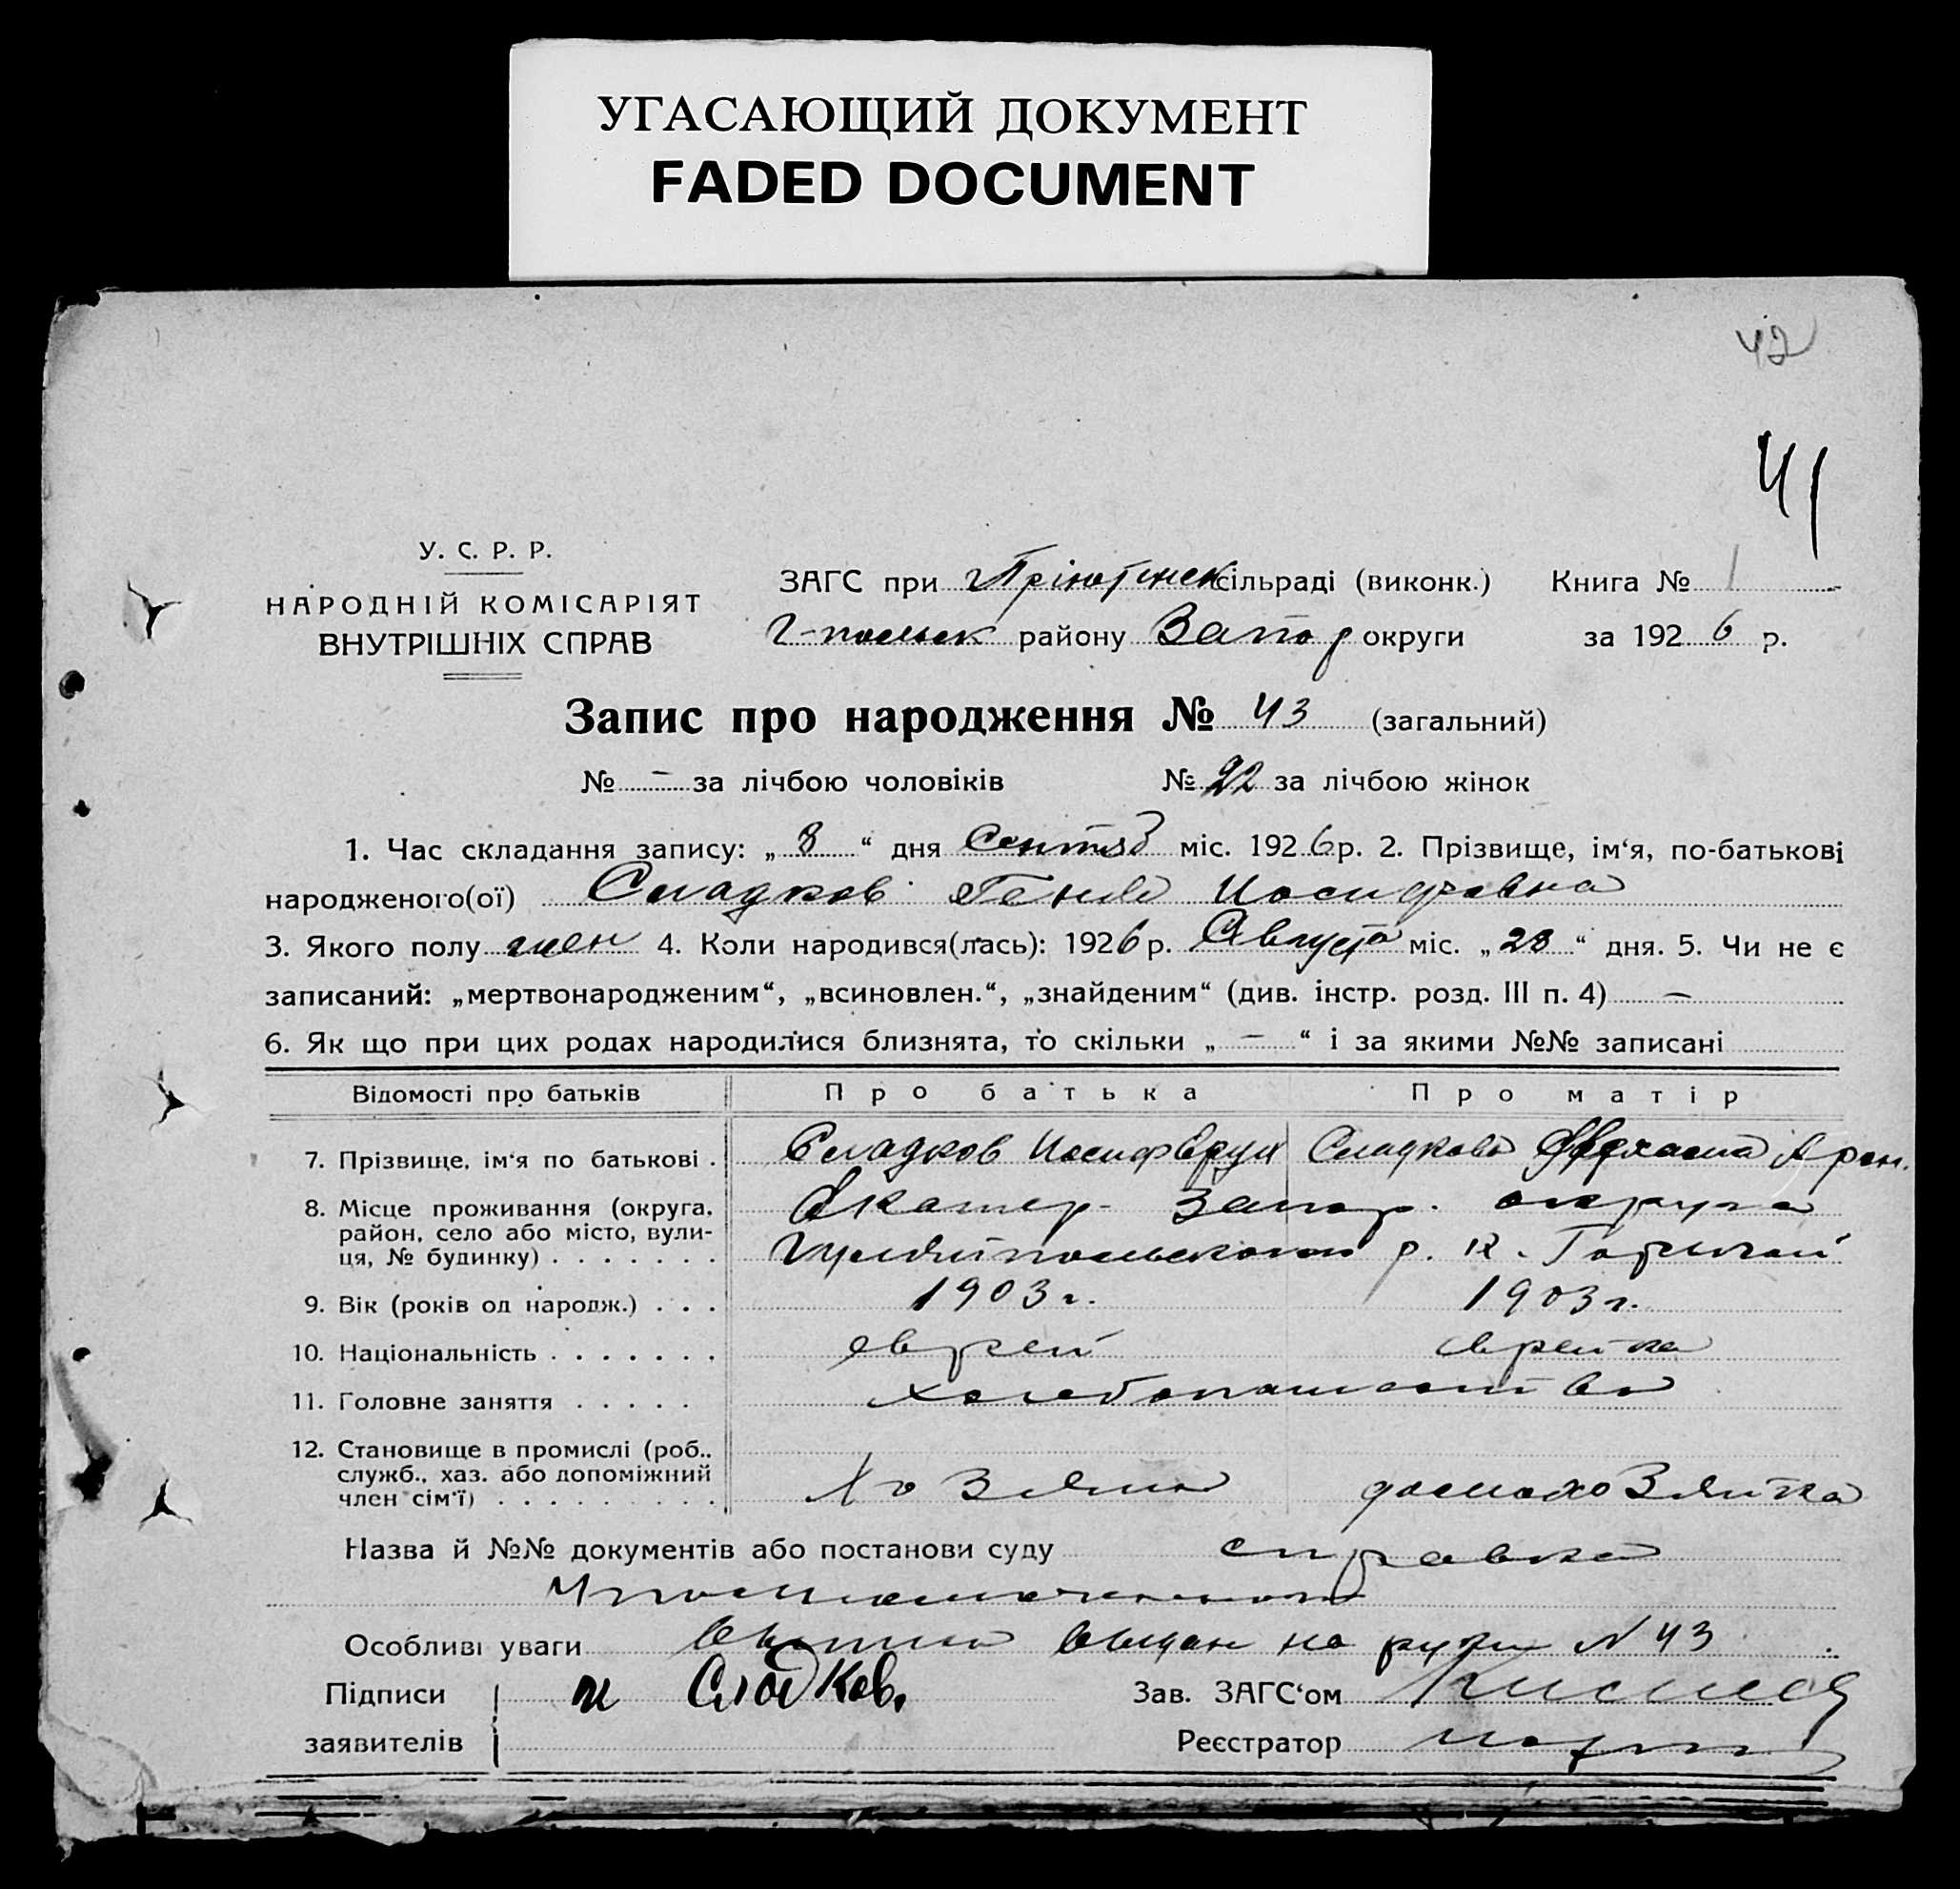 УГАСАЮЩИЙ ДОКУМЕНТ
FADED DOCUMENT
42
41
У. С. Р. Р.
НАРОДНІЙ КОМІСАРІЯТ
ВНУТРІШНІХ СПРАВ
ЗАГС при Пріютинск сільраді (виконк.) Книга № 1
Г-польск району Запор округи за 1926 р.
Запис про народження № 43 (загальний)
№ - за лічбою чоловіків № 22 за лічбою жінок
1. Час складання запису: „ 8 “ дня Сентяб міс. 1926 р. 2. Прізвище, ім‘я, по-батькові
народженого(ої) Сладков Геня Иосифовна
3. Якого полу жен 4. Коли народився(лась): 1926 р. Августа міс. „ 23 “ дня. 5. Чи не є
записаний: „мертвонародженим“, „всиновлен.“, „знайденим“ (див. інстр. розд. III п. 4) —
6. Як що при цих родах народилися близнята, то скільки „ — “ і за якими №№ записані
Відомості про батьків Про батька Про матір
7. Прізвище, ім‘я по батькові . Сладков Иосиф Сладкова Арон.
8. Місце проживання (округа, Екатер. Запор. округа
район, село або місто, вули-
ця, № будинку) . . . . . . . Гуляйпольского р. К.
9. Вік (років од народж.) . . . 1903 г. 1903 г.
10. Національність . . . . . . . еврей еврейка
11. Головне заняття . . . . . хлебопашество
12. Становище в промислі (роб..
служб., хаз. або допоміжний
член сім‘ї) . . . . . . . . . Хозяин домохозяйка
Назва й №№ документів або постанови суду справка
Особливі уваги выпись выдан на руки № 43
Підписи и Сладков. Зав. ЗАГС‘ом
заявителів Реєстратор